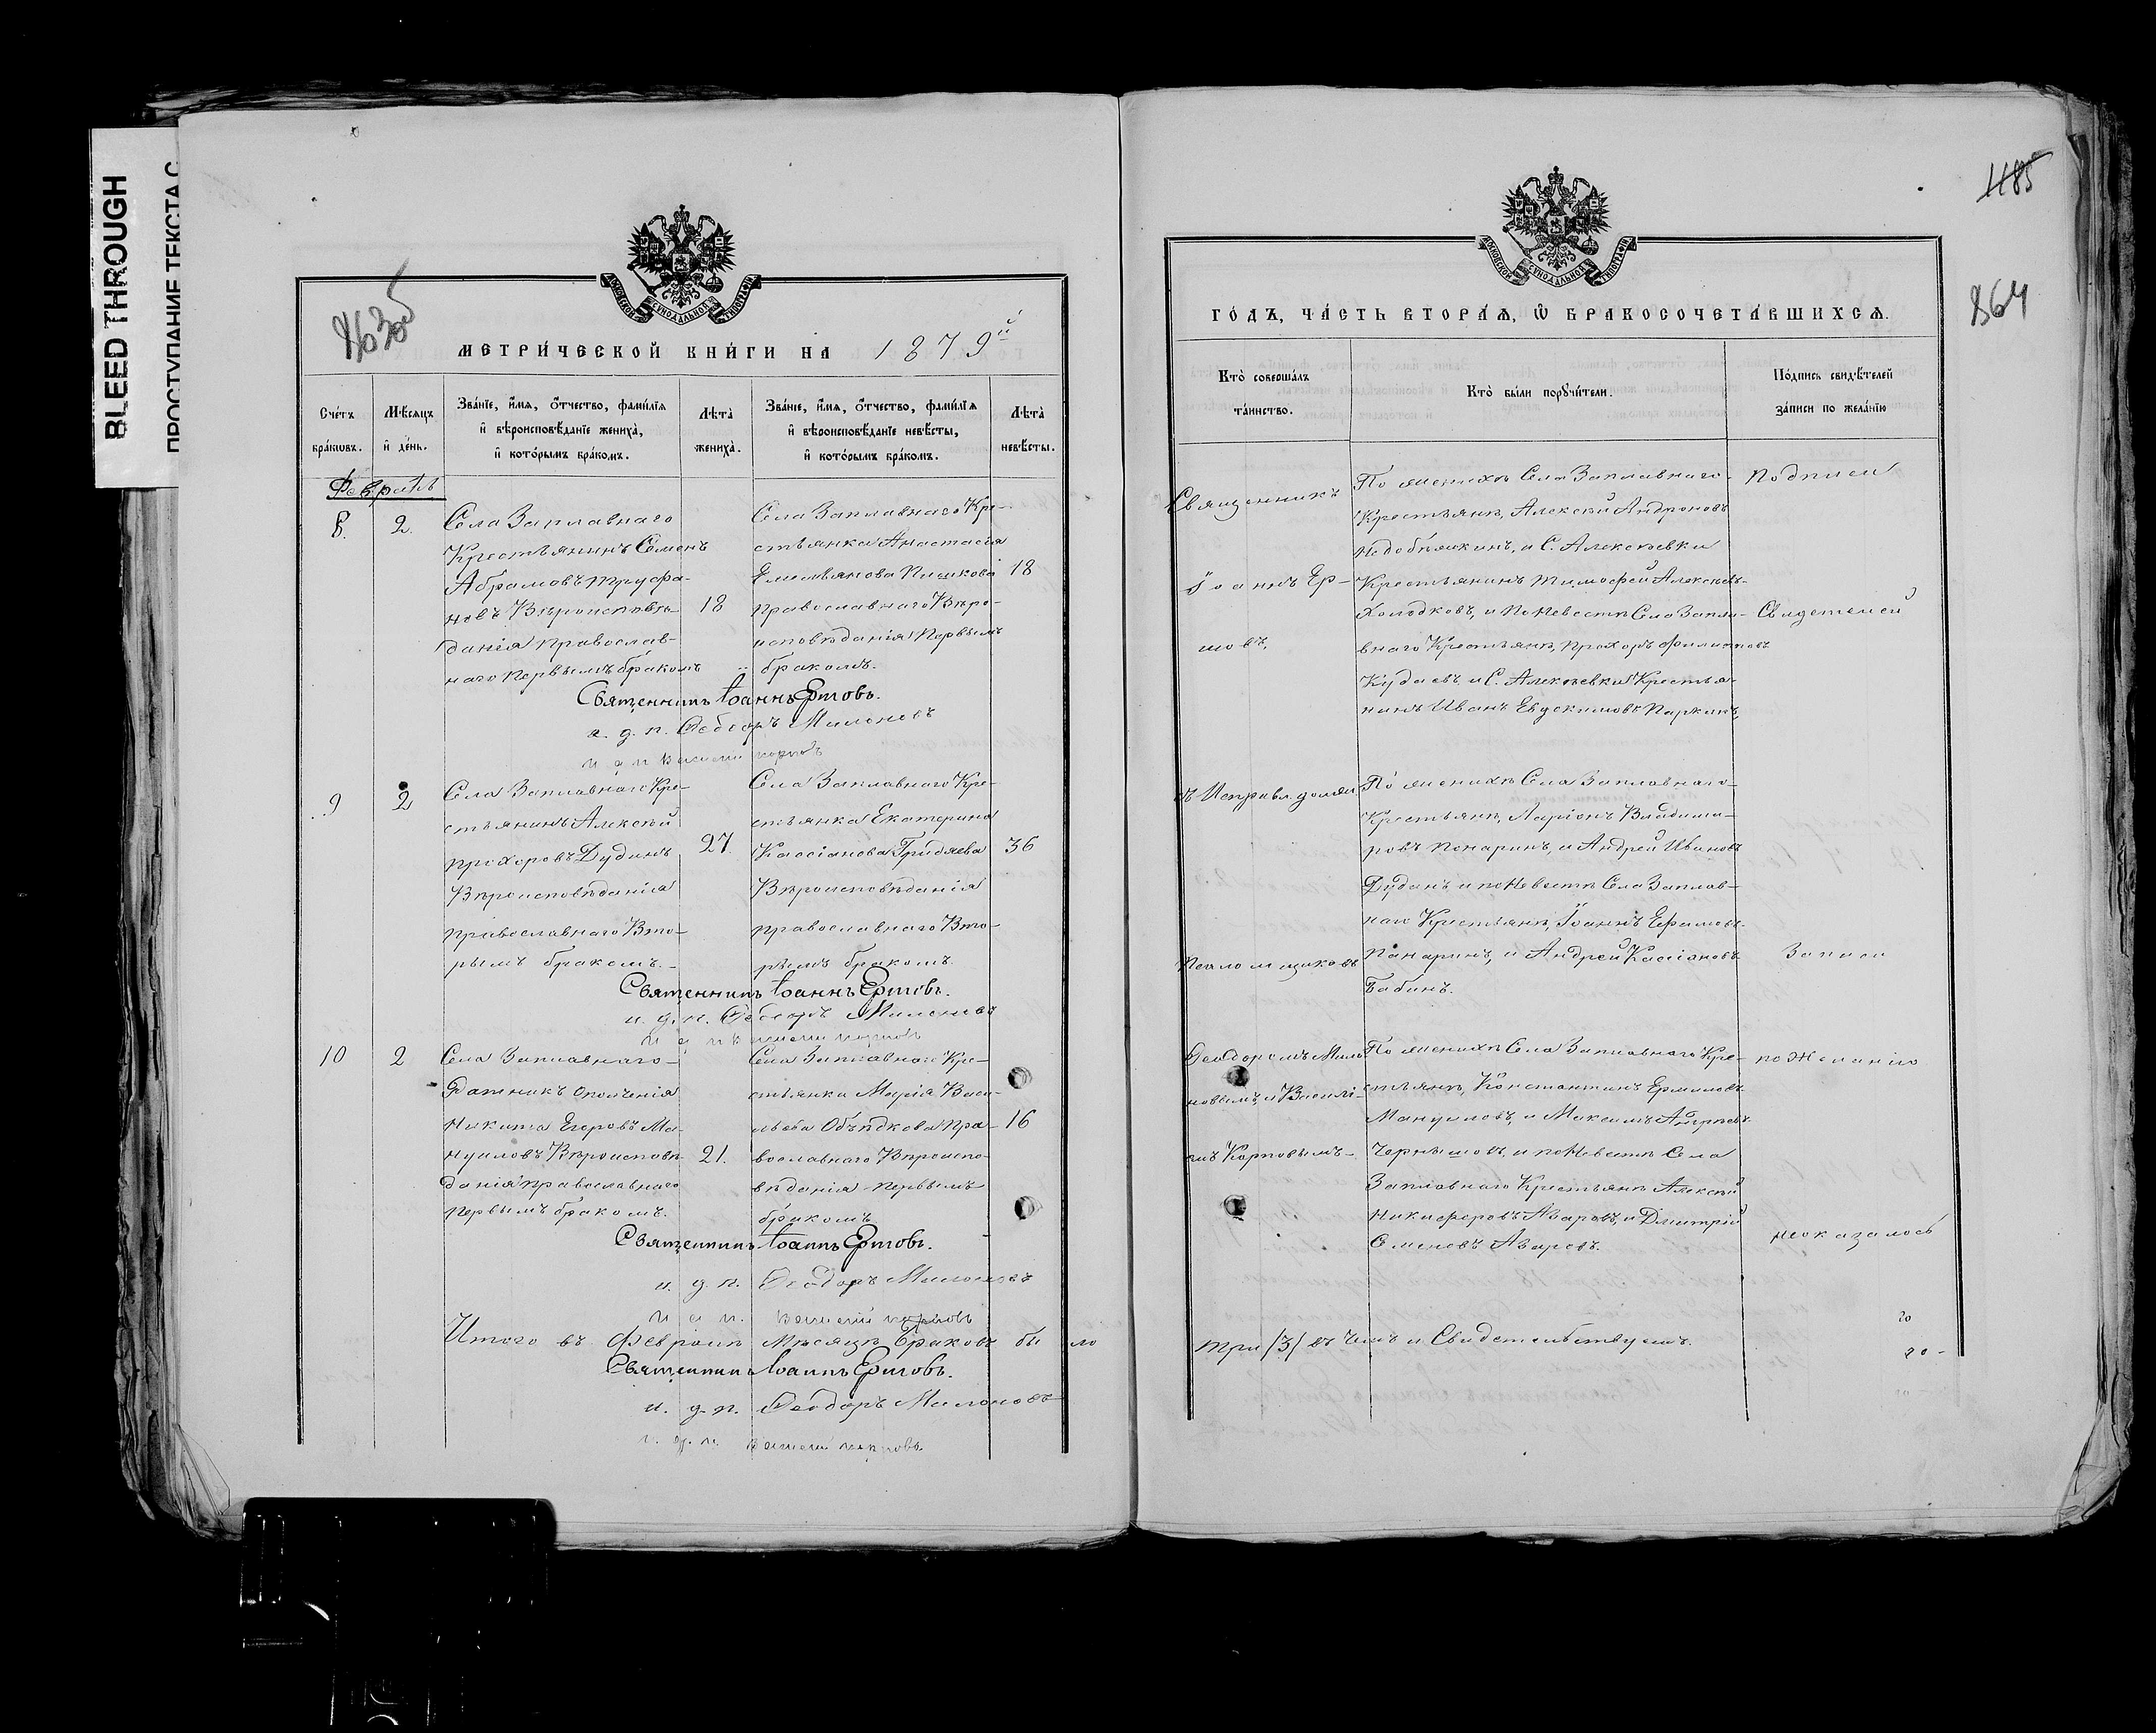 BLEED THROUGH
ПРОСТУПАНИЕ ТЕКСТА С
МОСКОВСКОЙ СѴНОДАЛЬНОЙ ТИПОГРАФІИ
МЕТРИ́ЧЕСКОЙ КНИ́ГИ НА 1879й
Сче́тъ бра́кѡвъ.
Мѣ́сяцъ и҆ де́нь.
Зва́нїе, и҆́мѧ, ѻ҆́тчество, фами́лїѧ
и҆ вѣроисповѣ́данїе жениха̀,
и҆ кото́рымъ бра́комъ.
Лѣта̀ жениха̀.
Зва́нїе, и҆́мѧ, ѻ҆́тчество, фами́лїѧ
и҆ вѣроисповѣ́данїе невѣ́сты,
и҆ кото́рымъ бра́комъ.
Лѣта̀ невѣ́сты.
Февраль
8. 2.
Села Заплавнаго
Крестьянинъ Семенъ
Абрамовъ Труфа-
новъ Вѣроисповѣ-
данія православ-
наго первымъ бракомъ
18
Села Заплавнаго Кре-
стьянка Анастасія
Емельянова Пишкова
православнаго Вѣро-
исповѣданія Первымъ
бракомъ.
18
Священникъ Іоаннъ Ершовъ.
и. д. п. Ѳеодоръ Милоновъ
и д п Василій Карповъ
9 2
Села Заплавнаго Кре-
стьянинъ Алексѣй
Прохоровъ Дудинъ
Вѣроисповѣданія
православнаго Вто-
рымъ бракомъ.-
27.
Села Заплавнаго Кре-
стьянка Екатерина
Кассіанова Гридяева
Вѣроисповѣданія
православнаго Вто-
рымъ бракомъ.
36
Священникъ Іоаннъ Ершовъ.
и. д. п. Ѳеодоръ Милоновъ
и д п Василій Карповъ
10 2
Села Заплавнаго-
Ратникъ ополченія
Никита Егоровъ Ма-
нуиловъ Вѣроисповѣ-
данія православнаго
первымъ бракомъ.
21.
Села Заплавнаго Кре-
стьянка Марія Васи-
льева Объѣдкова пра-
вославнаго Вѣроиспо-
вѣданія первымъ
бракомъ
16
Священникъ Іоаннъ Ершовъ.
и. д. п. Ѳеодоръ Милоновъ
и д п. Василій Карповъ
Итого въ Февралѣ Мѣсяцѣ браковъ бы ло
Священникъ Іоаннъ Ершовъ.
и. д. п. Ѳеодоръ Милоновъ
и. д. п. Василій Карповъ
1185
864
МОСКОВСКОЙ СѴНОДАЛЬНОЙ ТИПОГРАФІИ
ГО́ДЪ, ЧА́СТЬ ВТОРА́Ѧ, Ѽ БРАКОСОЧЕТА́ВШИХСѦ.
Кто̀ соверша́лъ та́инство.
Кто̀ бы́ли порꙋчи́тели.
По́дпись свидѣ́телей за́писи по жела́нїю
Священникъ
Іоаннъ Ер-
шовъ,
По женихѣ Села Заплавнаго-
Крестьянѣ, Алексѣй Андроновъ
Недобѣжкинъ, и С. Алексѣевки
Крестьянинъ Тимофей Алексѣевъ-
Холодковъ, и по Невестѣ Села Запла-
внаго Крестьянѣ, Прохоръ Филипповъ
Кудаевъ, и С. Алексѣевки Крестья-
нинъ Иванъ Евдокимовъ Паркинъ,
Подписи
Свидетелей
съ Исправл. должн
Псаломщиковъ
По женихѣ Села Заплавнаго-
Крестьянѣ, Ларіонъ Владими-
ровъ Понаринъ, и Андрей Ивановъ
Дудинъ и по Невестѣ Села Заплав-
наго Крестьянѣ, Іоаннъ Ефимовъ-
Панаринъ, и Андрей Кассіановъ
Бабинъ.
Записи
Ѳеодоромъ Мило
новымъ, и Василі-
емъ Карповымъ-
По женихѣ Села Заплавнаго Кре-
стьянѣ, Константинъ Ермиловъ
Мануиловъ, и Максимъ Андреевъ
Чернышовъ, и по Невестѣ Села
Заплавнаго Крестьянѣ Алексѣй
Никифоровъ Азаровъ, и Дмитрій
Семеновъ Азаровъ.
по Желанію
неоказалось
три /3/ въ чемъ и Свидетельствуемъ.
20
20-